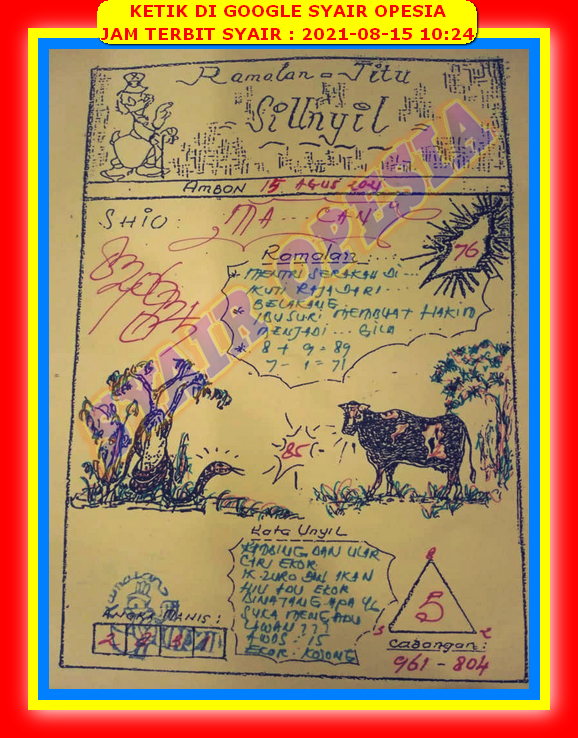 KETIK DI GOOGLE SYAIR OPESIA
JAM TERBIT SYAIR : 2021-08-15 10:24
Ramalan = Jitu
Si Unyil
AMBON 15 AGUS 2021
SHIO : MA... CAN
SYAIR OPESIA
76
Ramalan ....
* MENTRI SERAKAH DI...
IKUTI RAJA DARI...
BELAKANG
* IBU SURI MEMBUAT HAKIM
MENJADI... GILA
* 8 + 9 = 89
7 - 1 = 71
85
Kata Unyil
KAMBING DAN ULAR
CARI EKOR
DAN IKAN
HIU ADU EKOR
BINATANG APA YG
SUKA MENGADU
LAWAN ???
AWAS : 15
EKOR : KOSONG
ANGKA MANIS :
5
Cabangan :
961 - 804